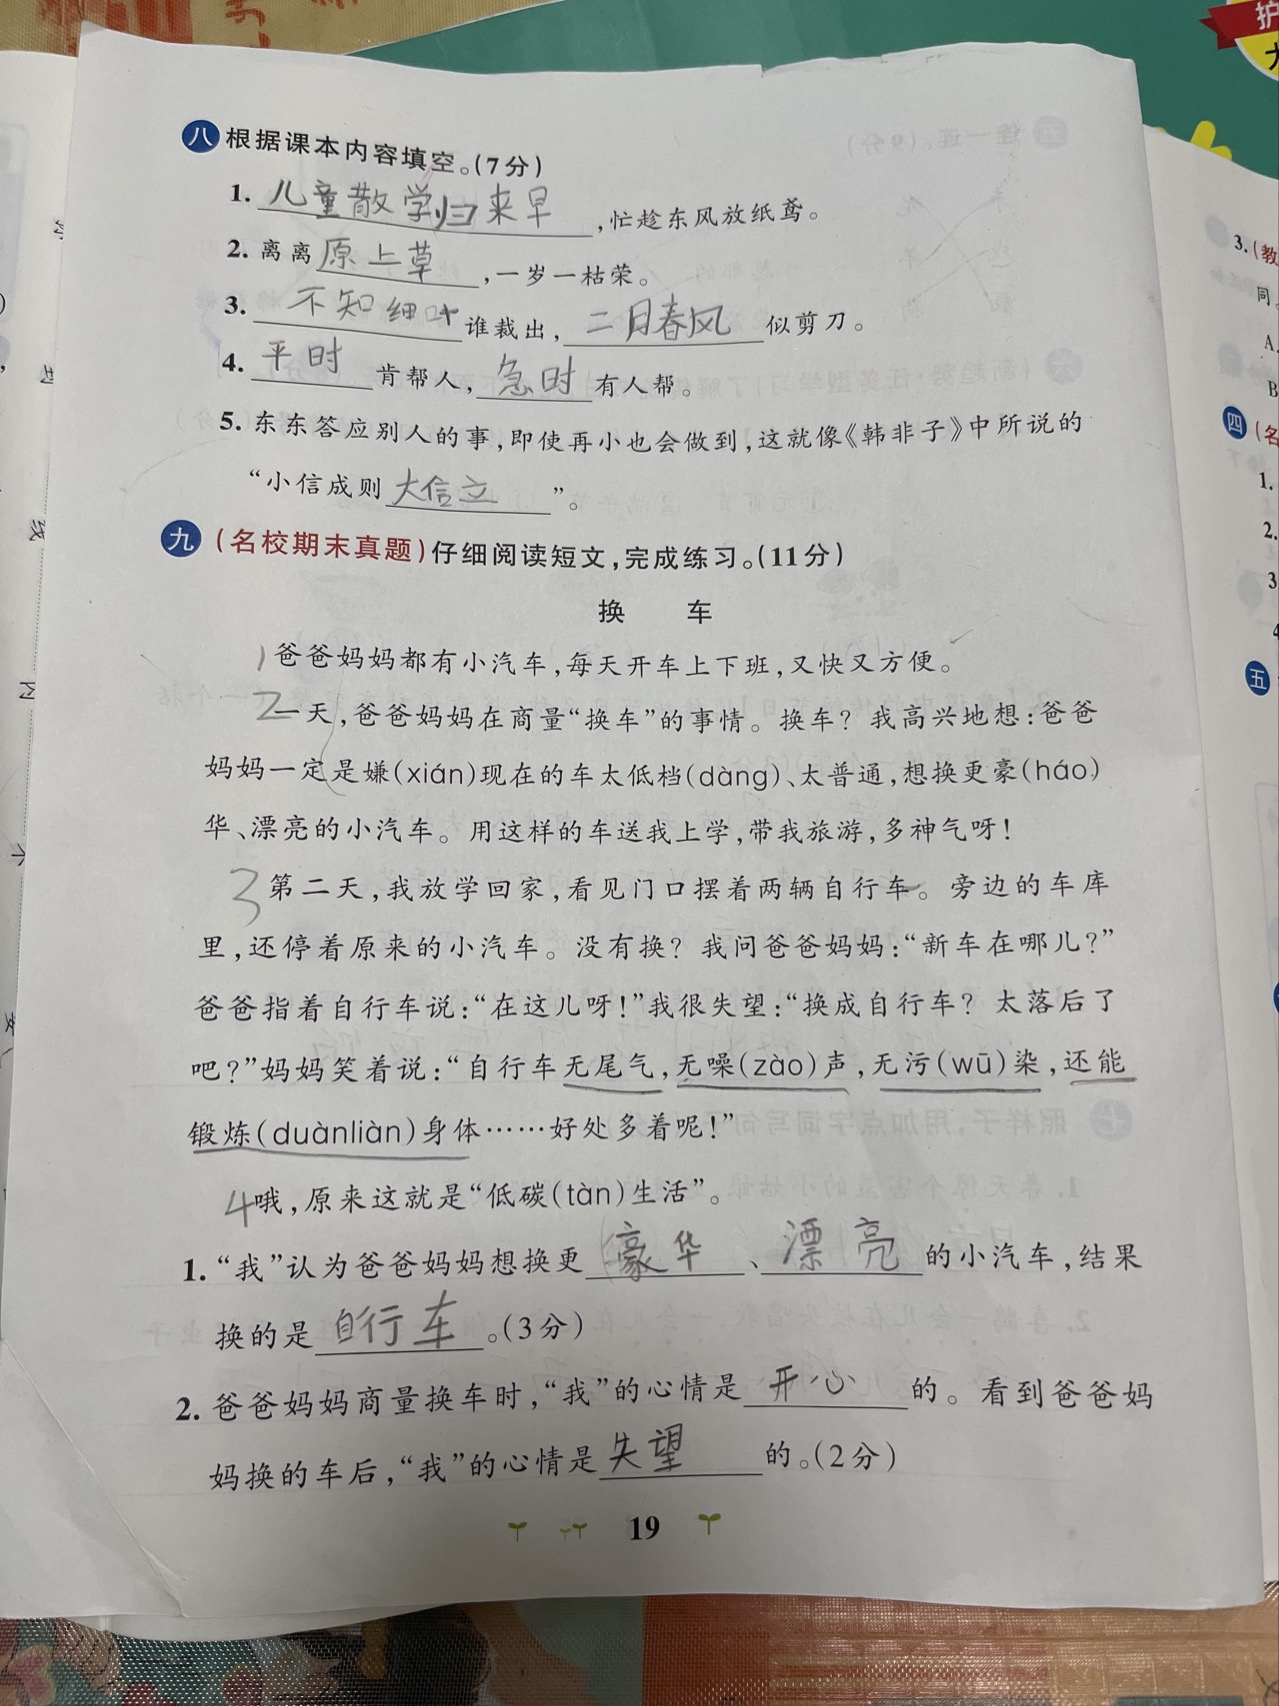 八 根据课本内容填空。(7分)
1. 儿童散学归来早,忙趁东风放纸鸢。
2. 离离原上草,一岁一枯荣。
3. 不知细叶谁裁出,二月春风似剪刀。
4. 平时肯帮人,急时有人帮。
5. 东东答应别人的事,即使再小也会做到,这就像《韩非子》中所说的
“小信成则大信立”。
九 (名校期末真题)仔细阅读短文,完成练习。(11分)
换 车
1 爸爸妈妈都有小汽车,每天开车上下班,又快又方便。
2 一天,爸爸妈妈在商量“换车”的事情。换车? 我高兴地想:爸爸
妈妈一定是嫌(xián)现在的车太低档(dàng)、太普通,想换更豪(háo)
华、漂亮的小汽车。用这样的车送我上学,带我旅游,多神气呀!
3 第二天,我放学回家,看见门口摆着两辆自行车。旁边的车库
里,还停着原来的小汽车。没有换? 我问爸爸妈妈:“新车在哪儿?”
爸爸指着自行车说:“在这儿呀!”我很失望:“换成自行车? 太落后了
吧?”妈妈笑着说:“自行车无尾气,无噪(zào)声,无污(wū)染,还能
锻炼(duànliàn)身体……好处多着呢!”
4 哦,原来这就是“低碳(tàn)生活”。
1. “我”认为爸爸妈妈想换更豪华、漂亮的小汽车,结果
换的是自行车。(3分)
2. 爸爸妈妈商量换车时,“我”的心情是开心的。看到爸爸妈
妈换的车后,“我”的心情是失望的。(2分)
19
护
3. (教
同。
A.
B
四 (名
1.
2.
3
4
五
线
内
不